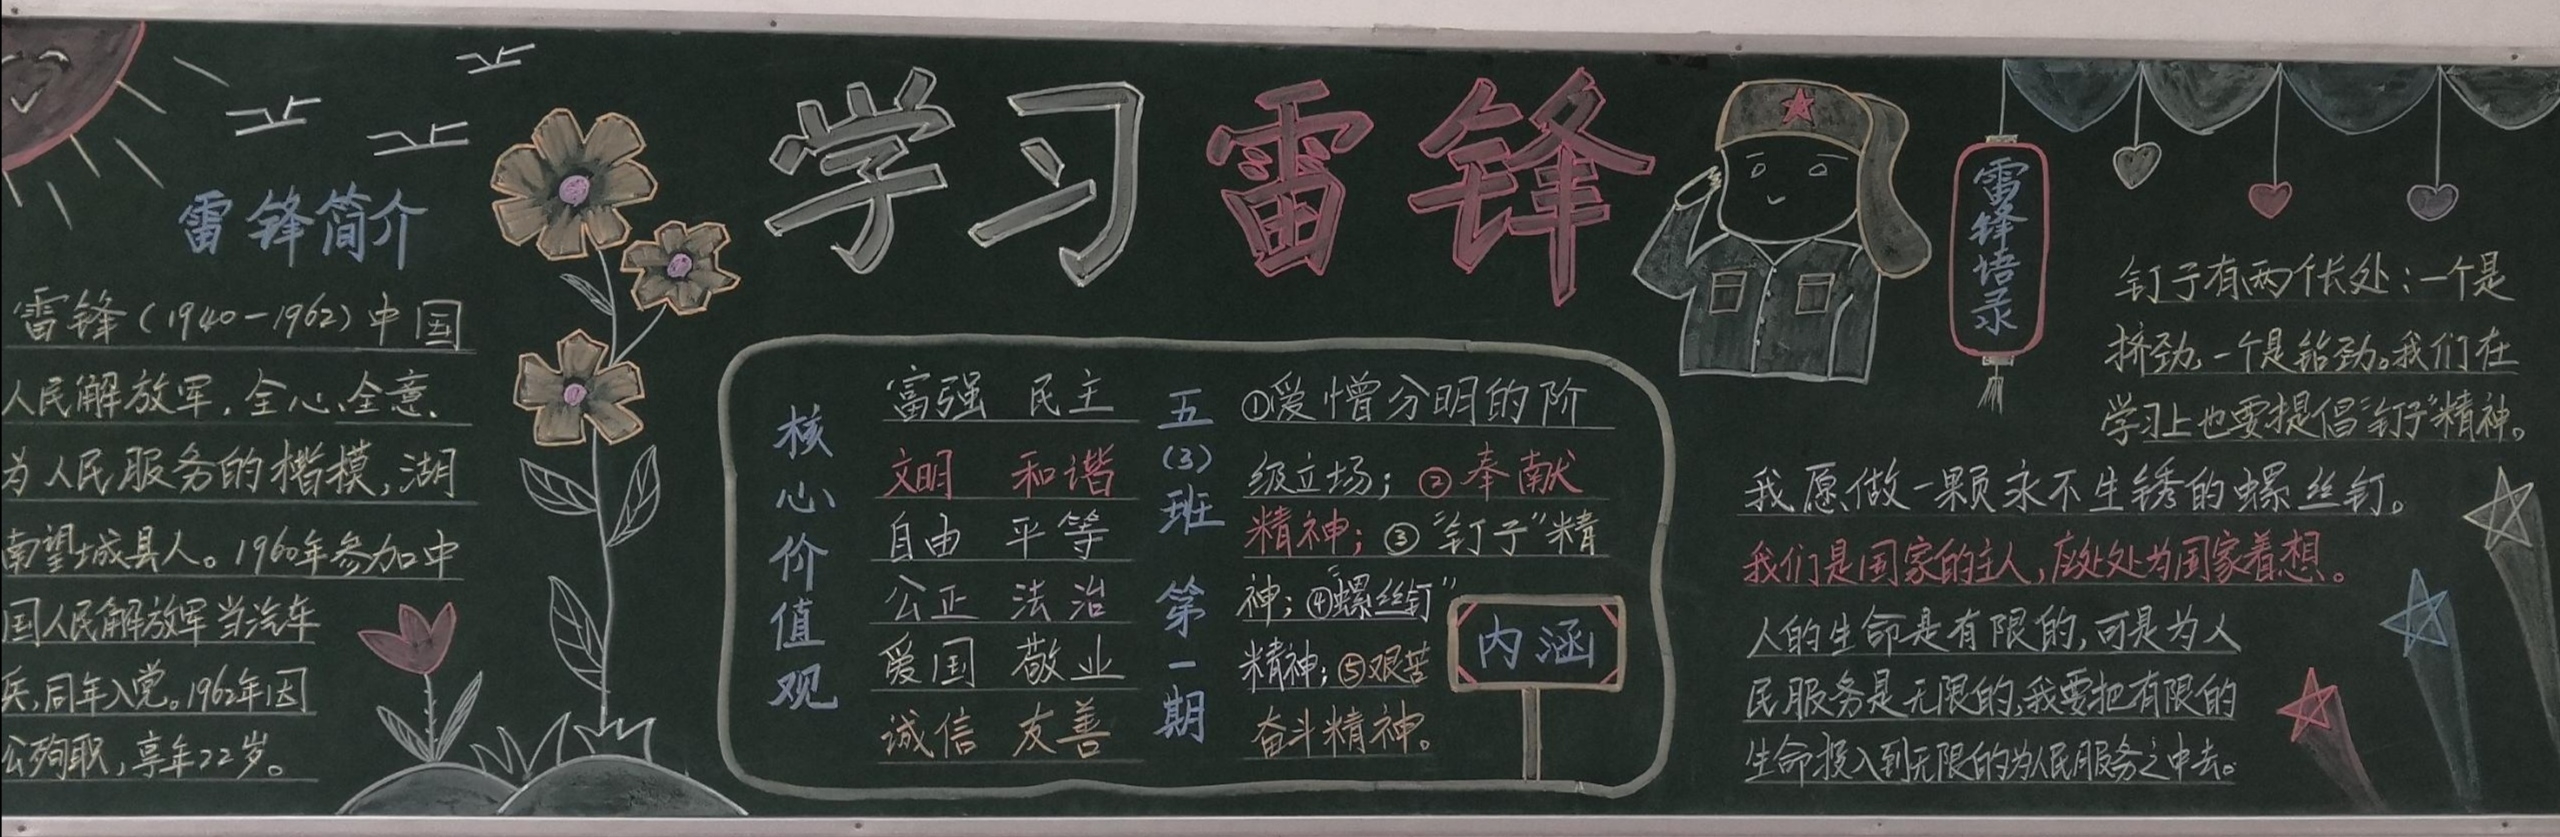 学习雷锋
雷锋简介
雷锋(1940-1962)中国
人民解放军,全心全意
为人民服务的楷模,湖
南望城县人。1960年参加中
国人民解放军当汽车
兵,同年入党。1962年因
公殉职,享年22岁。
核心价值观
富强 民主
文明 和谐
自由 平等
公正 法治
爱国 敬业
诚信 友善
五(3)班 第一期
①爱憎分明的阶
级立场;②奉献
精神;③“钉子”精
神;④“螺丝钉”
精神;⑤艰苦
奋斗精神。
内涵
雷锋语录
钉子有两个长处:一个是
挤劲,一个是钻劲。我们在
学习上也要提倡“钉子”精神。
我愿做一颗永不生锈的螺丝钉。
我们是国家的主人,应处处为国家着想。
人的生命是有限的,可是为人
民服务是无限的,我要把有限的
生命投入到无限的为人民服务之中去。